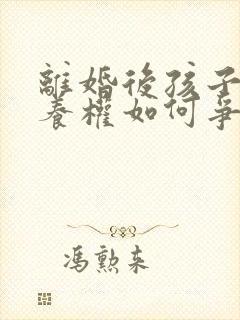 離婚後孩子
養權如何爭
馮勲来